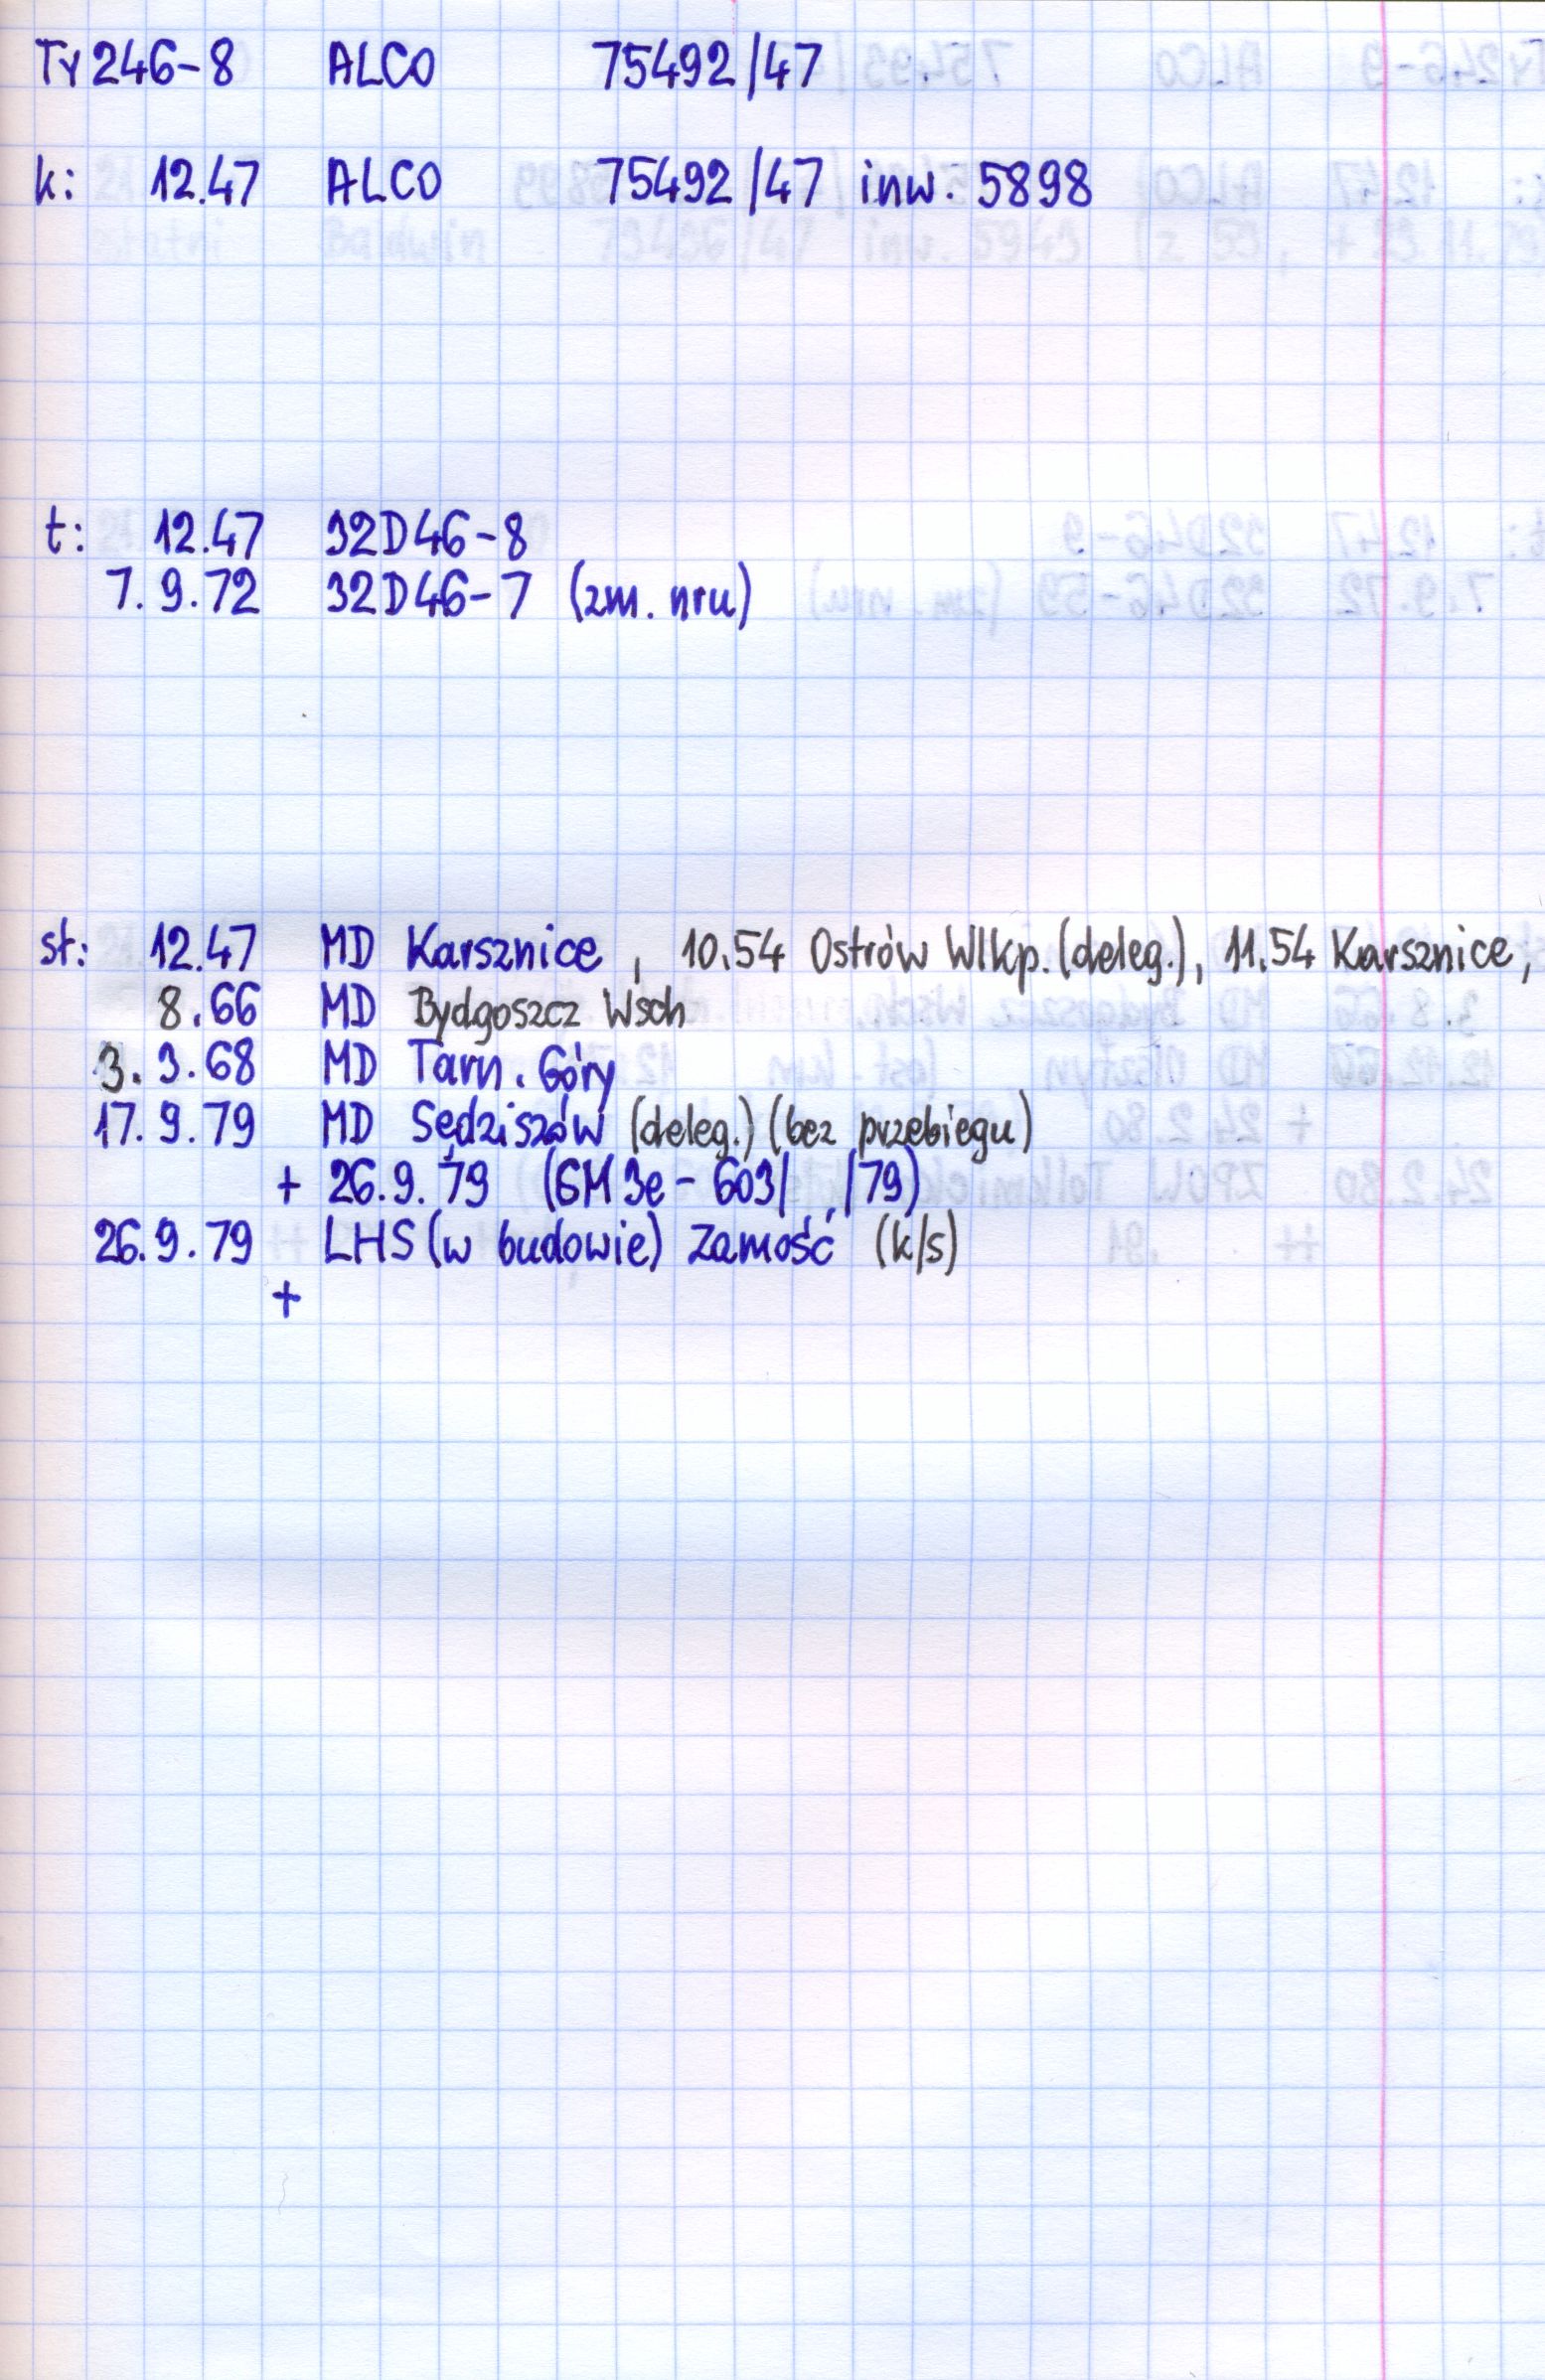 Ty246-8 ALCO 75492/47
k: 12.47 ALCO 75492/47 inw. 5898
t: 12.47 32D46-8
7.9.72 32D46-7 (zm. nru)
st: 12.47 MD Karsznice, 10.54 Ostrów Wlkp. (deleg.), 11.54 Karsznice,
8.66 MD Bydgoszcz Wsch
3.3.68 MD Tarn. Góry
17.9.79 MD Sędziszów (deleg.) (bez przebiegu)
+ 26.9.79 (GM3e-603/ /79)
26.9.79 LHS (w budowie) Zamość (k/s)
+